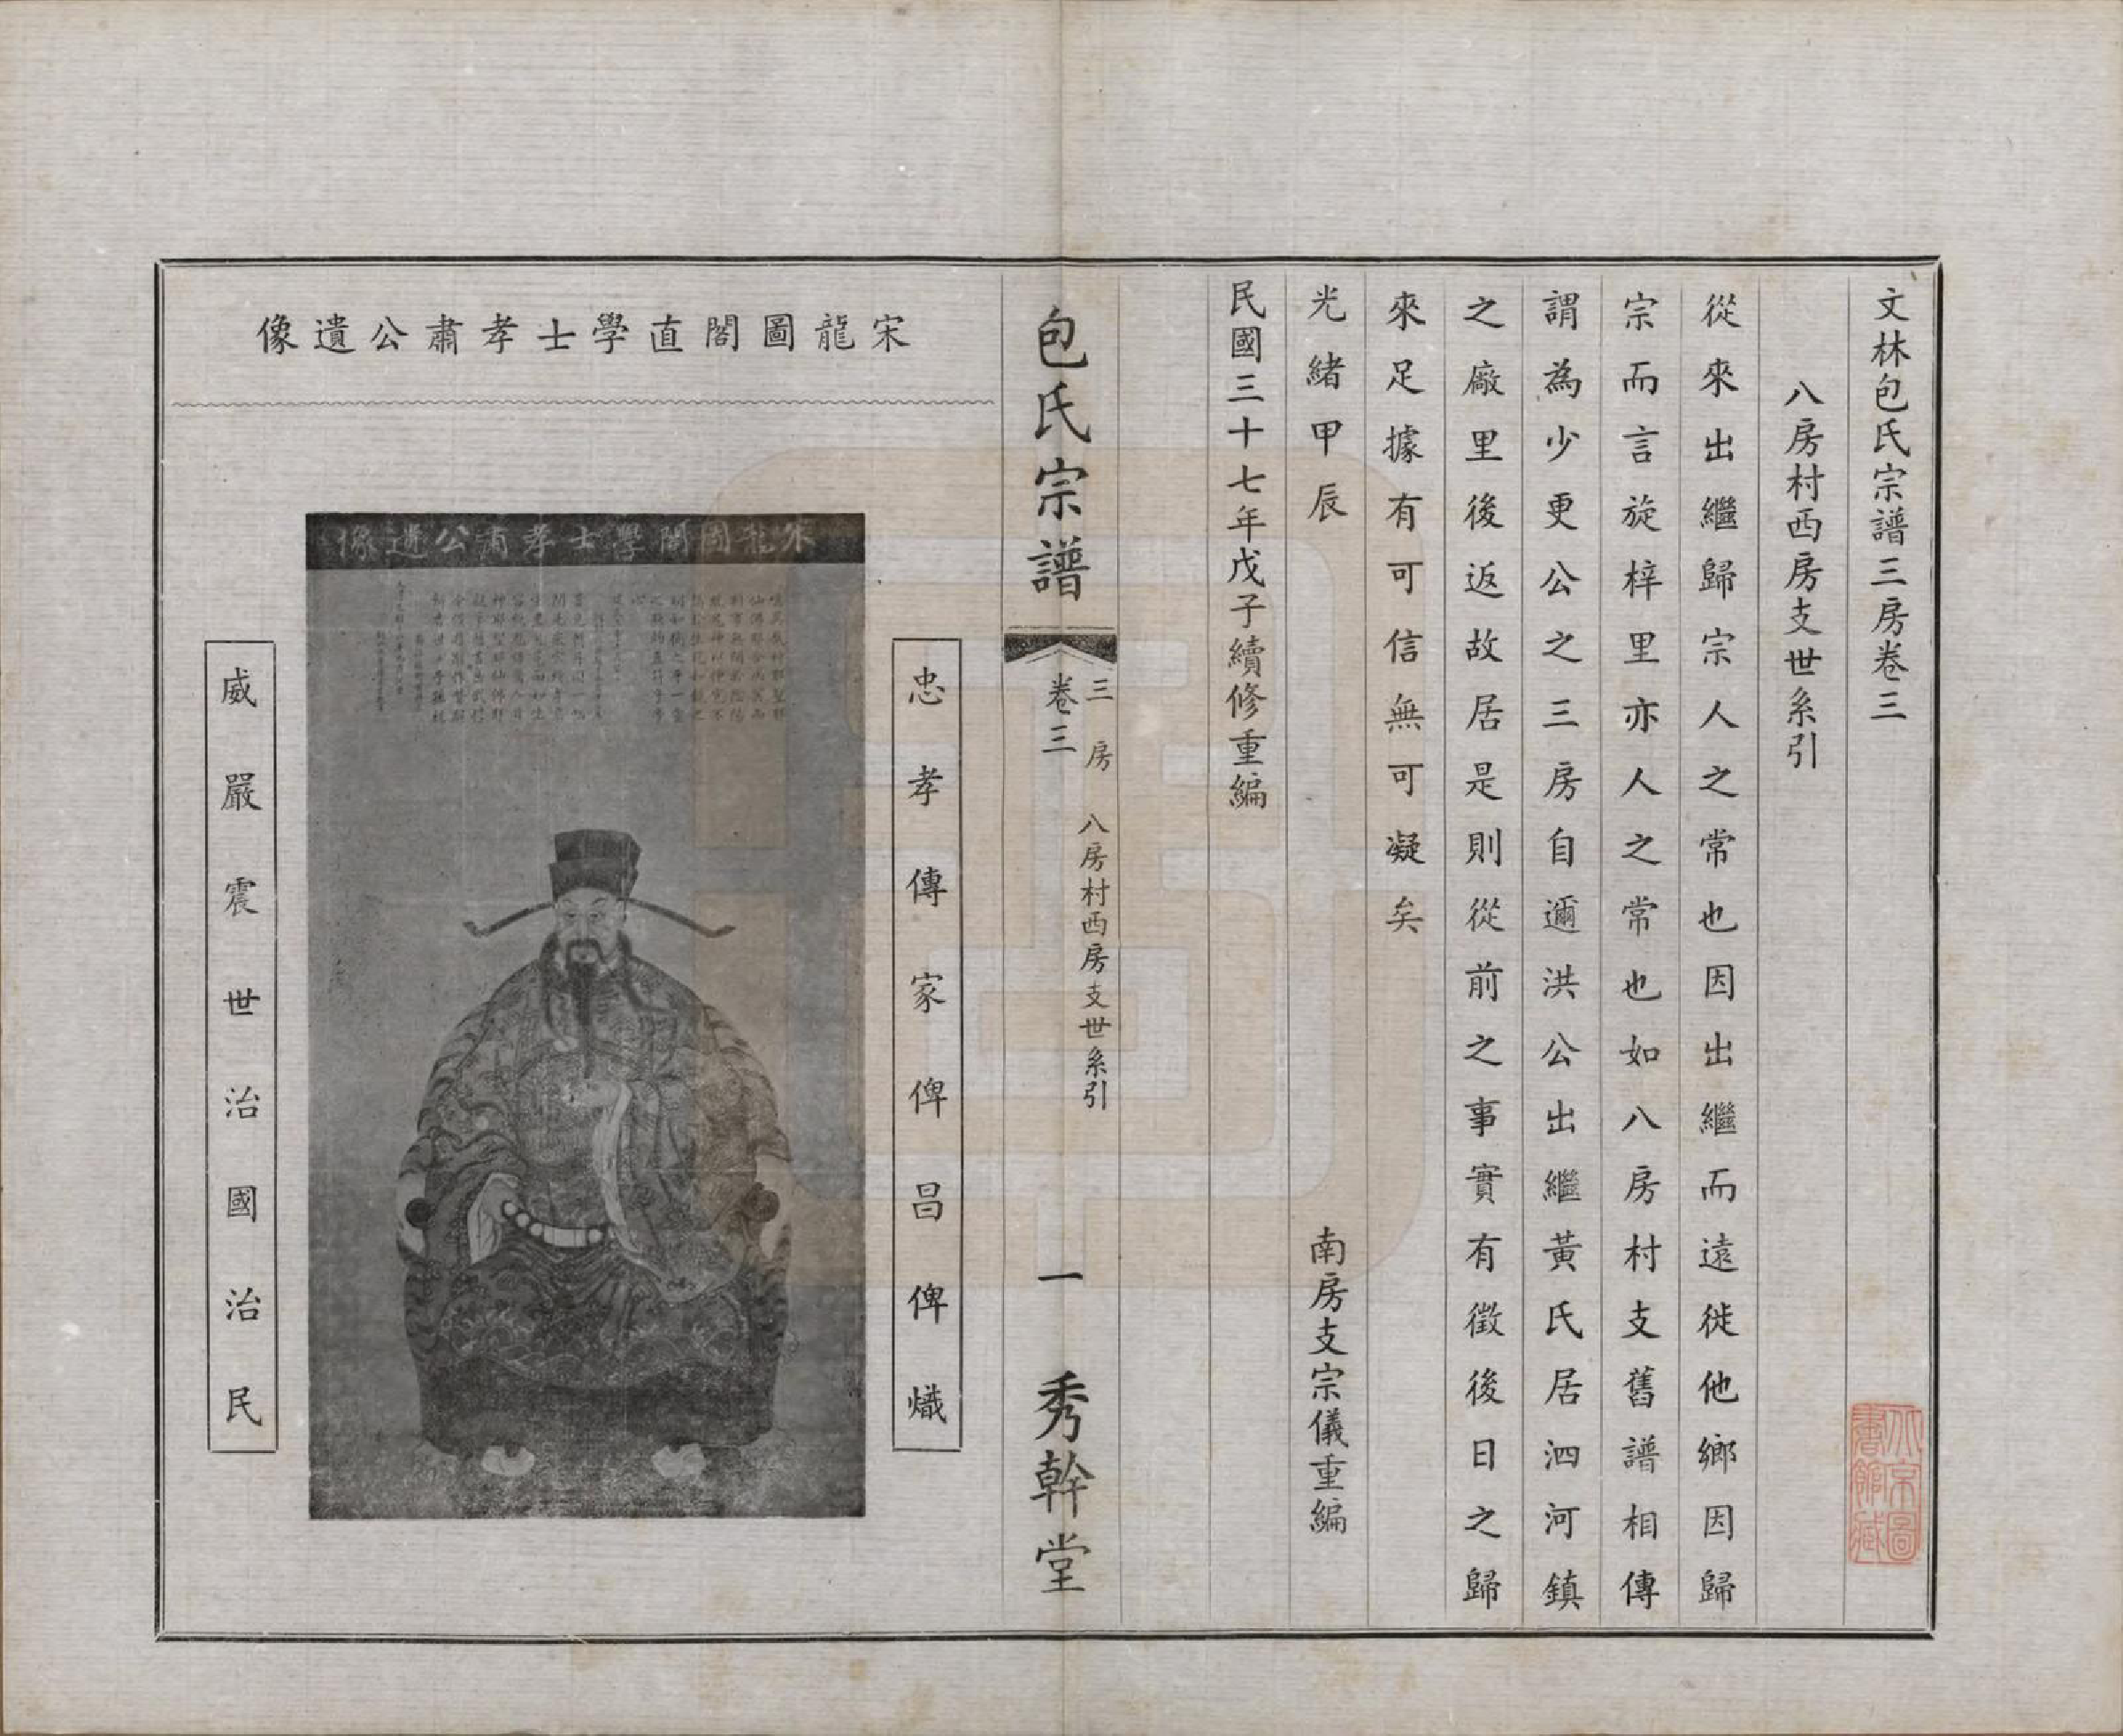 文林包氏宗譜三房卷三
八房村西房支世系引
從來出繼歸宗人之常也因出繼而遠徙他鄉因歸
宗而言旋梓里亦人之常也如八房村支舊譜相傳
謂為少更公之三房自邇洪公出繼黃氏居泗河鎮
之廠里後返故居是則從前之事實有徵後日之歸
來足據有可信無可凝矣
光緒甲辰
南房支宗儀重編
民國三十七年戊子續修重編
包氏宗譜
三房 八房村西房支世系引
卷三
一
秀幹堂
宋龍圖閣直學士孝肅公遺像
忠孝傳家俾昌俾熾
宋龍圖閣學士孝肅公遺像
威嚴震世治國治民